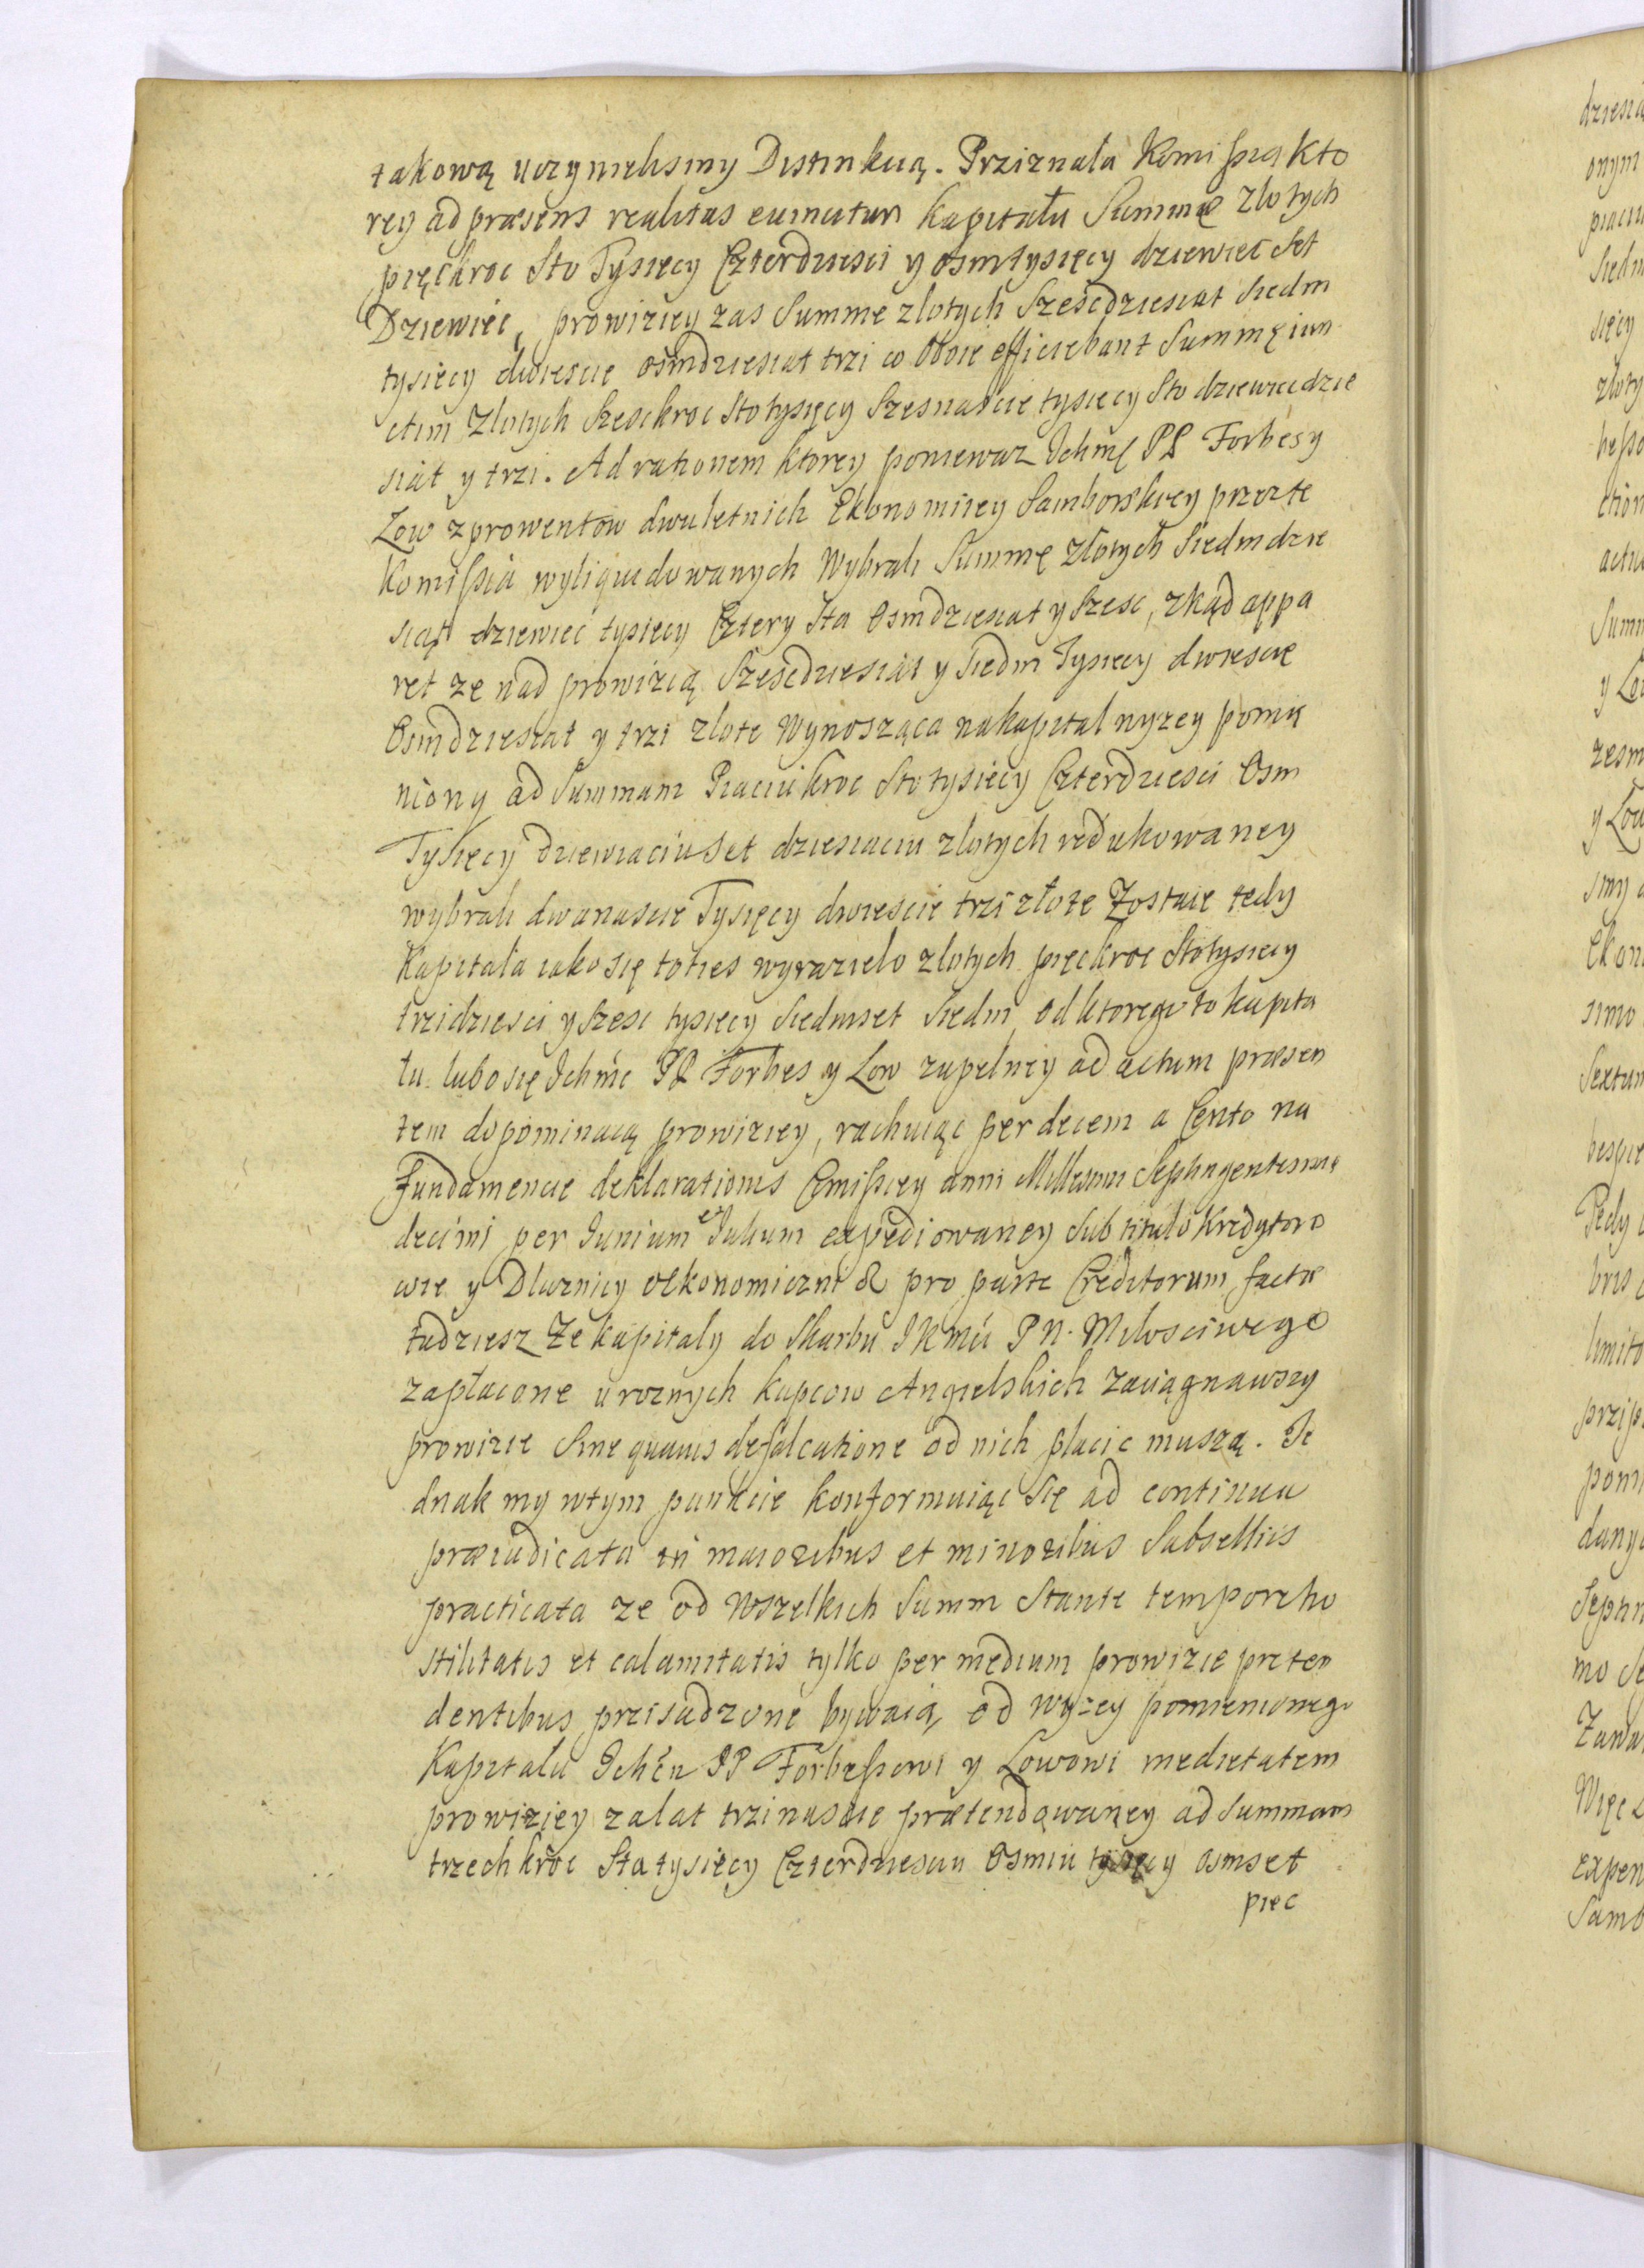 takową uczyniehsmy Distinkcią. Prziznała Komissia kto
rey ad præsens realitas eumitur kapitału Summę zlotych
pięckroc Sto Tysięcy Czterdziesci y osmtysięcy dziewiec Set
Dziewiec, prowiziey zas Summe zlotych Szescdziesiat siedm
tysięcy dwiescie osmdziesiat trzi co oboie efficiebant Summę iun
ctim Zlotych Szesckroc Stotysięcy Szesnascie tysięcy Sto dziewiedzie
siąt y trzi. Ad rationem ktorey poniewaz Ichmc PP Forbesy
Low zprowentow dwuletnich Ekonomiiey Samborskiey przezte
Komissią wyliquidowanych Wybrali Summę zlotych Siedmdzie
siąt dziewiec tysięcy Cztery Sta Osmdziesiat y Szesc, zkąd appa
ret ze nad prowizią Szescdziesiąt y Siedm Tysięcy dwiescie
Osmdziesiat y trzi zlote Wynosząca nakapital wyzey pomie
niony ad Summam Piaciukroc Stotysięcy Czterdziesci Osm
Tysięcy dziewiaciuset dziesiaciu zlotych redukowaney
wybrali dwanascie Tysięcy dwiescie trzi złote Zostaie tedy
Kapitała iako się toties wyrazielo zlotych pięckroc Stotysięcy
trzidziesci y Szesc tysięcy Siedmset Siedm, od ktorego to kapita
łu. lubo się Ichmc PP Forbes y Low zupelney ad actum præsen
tem dopominaią prowiziey, rachuiąc per decem a Cento na
Fundamencie deklarationis Comissiey anni Millesimi Septingentesimi
decimi per Iunium et Iulium expediowaney Sub titulo Kredytoro
wie y Dluznicy oekonomiczni & pro parte Creditorum factæ
tudziesz Ze kapitaly do Skarbu IKMci PN. Milosciwego
zapłacone uroznych kupcow Angielskich zaciągnawszy
prowizie Sine quavis defalcatione od nich placic muszą. Ie
dnak my wtym punkcie konformuiąc Się ad continua
præiudicata in maioribus et minoribus Subselliis
practicata ze od Wszelkich Summ Stante tempore ho
stilitatis et calamitatis tylko per medium prowizie præten
dentibus przisadzone bywaią, od wyzey pomienionego
Kapitalu Ichćn PP Forbessowi y Lowowi medietatem
prowiziey zalat trzinascie prætendowaney ad Summam
trzechkroc Statysięcy Czterdziestu Osmiu tysięcy osmset
piec